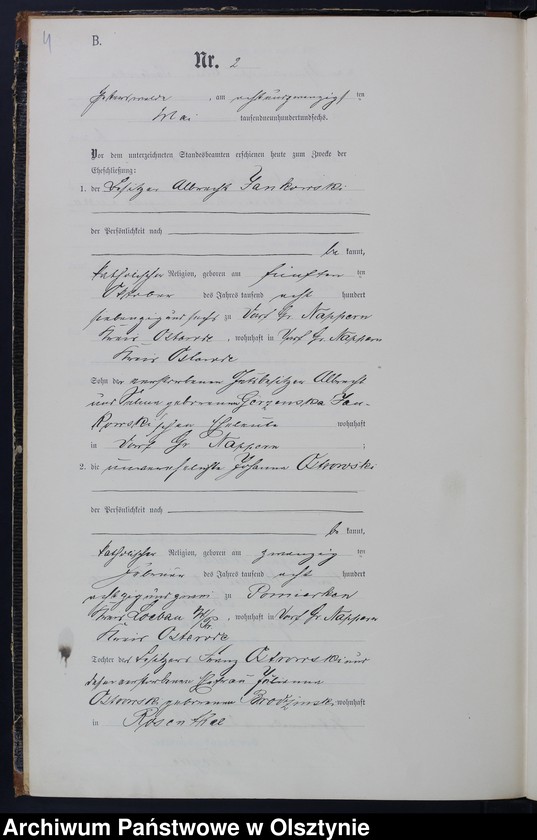 4
B.
Nr. 2
Peterswalde, am achtundzwanzigsten
Mai tausendneunhundertundsechs.
Vor dem unterzeichneten Standesbeamten erschienen heute zum Zwecke der
Eheschließung:
1. der Besitzer Albrecht Jankowski
der Persönlichkeit nach
be kannt,
katholischer Religion, geboren am fünften ten
Oktober des Jahres tausend acht hundert
siebenzig und sechs zu Dorf Gr. Nappern
Kreis Osterode, wohnhaft in Dorf Gr. Nappern
Kreis Osterode
Sohn der verstorbenen Gutsbesitzer Albrecht
und geborenen Gorzenska Jan-
kowski'schen Eheleute wohnhaft
in Dorf Gr. Nappern;
2. die unverehelichte Johanna Ostrowski
der Persönlichkeit nach
be kannt,
katholischer Religion, geboren am zwanzig ten
Februar des Jahres tausend acht hundert
achtzig und zu Pomierken
Kreis Loebau W/Pr., wohnhaft in Dorf Gr. Nappern
Kreis Osterode
Tochter des Besitzers Franz Ostrowski und
dessen verstorbenen Ehefrau Julianna
Ostrowski geborenen Brodzinski wohnhaft
in Rosenthal
Archiwum Państwowe w Olsztynie